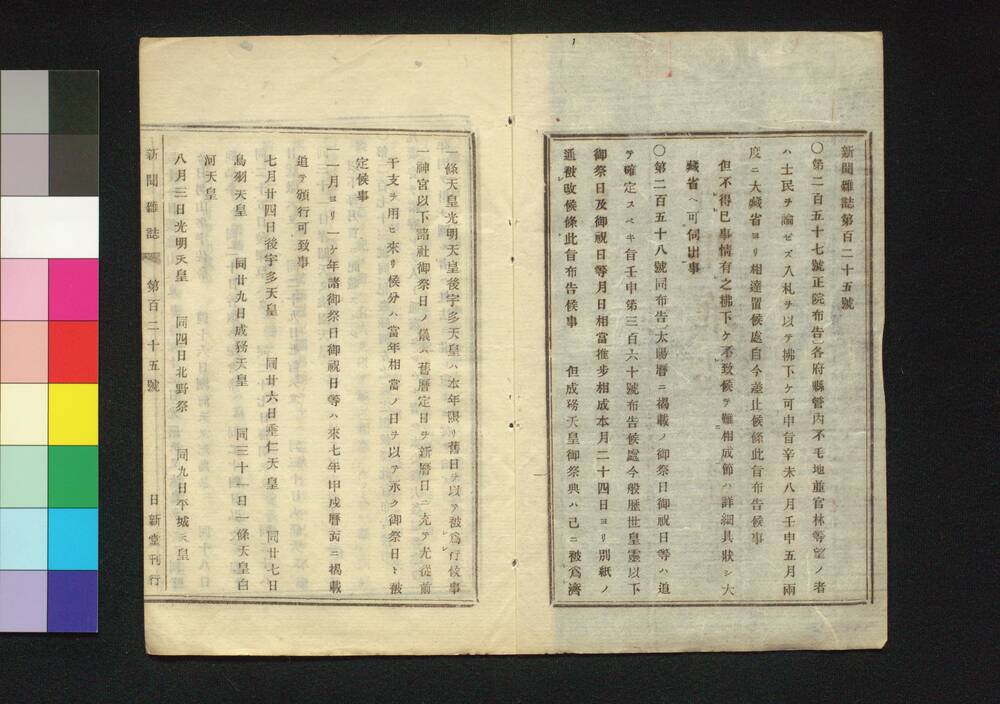 新聞雜誌第百二十五號
〇第二百五十七號正院布告各府縣管内不毛地並官林等望ノ者
ハ士民ヲ論ゼズ入札ヲ以テ拂下ケ可申旨辛未八月壬申五月兩
度ニ大藏省ヨリ相達置候處自今差止候條此旨布告候事
但不得已事情有之拂下ケ不致候テ難相成節ハ詳細具狀シ大
藏省ヘ可伺出事
〇第二百五十八號同布告太陽曆ニ揭載ノ御祭日御祝日等ハ追
テ確定スベキ旨壬申第三百六十號布告候處今般歷世皇靈以下
御祭日及御祝日等月日相當推步相成本月二十四日ヨリ別紙ノ
通被改候條此旨布告候事　但成務天皇御祭典ハ已ニ被爲濟
一條天皇光明天皇後宇多天皇ハ本年限リ舊日ヲ以テ被爲行候事
一神宮以下諸社御祭日ノ儀ハ舊曆定日ヲ新曆日ニ充テ尤從前
干支ヲ用ヒ來リ候分ハ當年相當ノ日ヲ以テ永ク御祭日ト被
定候事
一一月ヨリ一ケ年諸御祭日御祝日等ハ來七年甲戌曆面ニ揭載
追テ頒行可致事
七月廿四日後宇多天皇　同廿六日垂仁天皇　同廿七日
鳥羽天皇　同廿九日成務天皇　同三十一日一條天皇白
河天皇
八月三日光明天皇　同四日北野祭　同九日平城天皇
新聞雜誌　第百二十五號　日新堂刊行